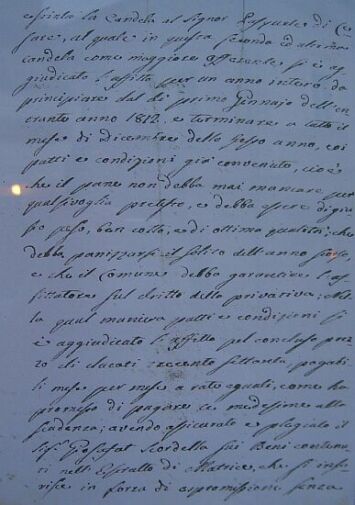 estinta la Candela al Signor Pasquale di Ce
sare, al quale in questa seconda ed ultima
candela come maggiore offerente si è ag
giudicato l'affitto per un anno intero da
principiare dal dì primo Gennajo dell'en
trante anno 1812, e terminare a tutto il
mese di Dicembre dello stesso anno, coi
patti e condizioni già convenuti, cioè
che il pane non debba mai mancare per
qualsivoglia pretesto, e debba essere di giu
sto peso, ben cotto, e di ottima qualità; che
debba panizzarsi il solito dell'anno scorso,
e che il Comune debba garantire l'af
fittatore sul dritto della privativa; Nel
la qual maniera patti e condizioni si
è aggiudicato l'affitto pel concluso prez
zo di ducati trecento settanta, pagabi
li mese per mese a rate eguali, come ha
promesso di pagare, medesimo alla
scadenza; avendo assicurato e plegiato il
Sig. Giosafat Scordella sui Beni contenu
ti nell'Estratto di Matrice, che si inse
risce in forza di espromissione senza